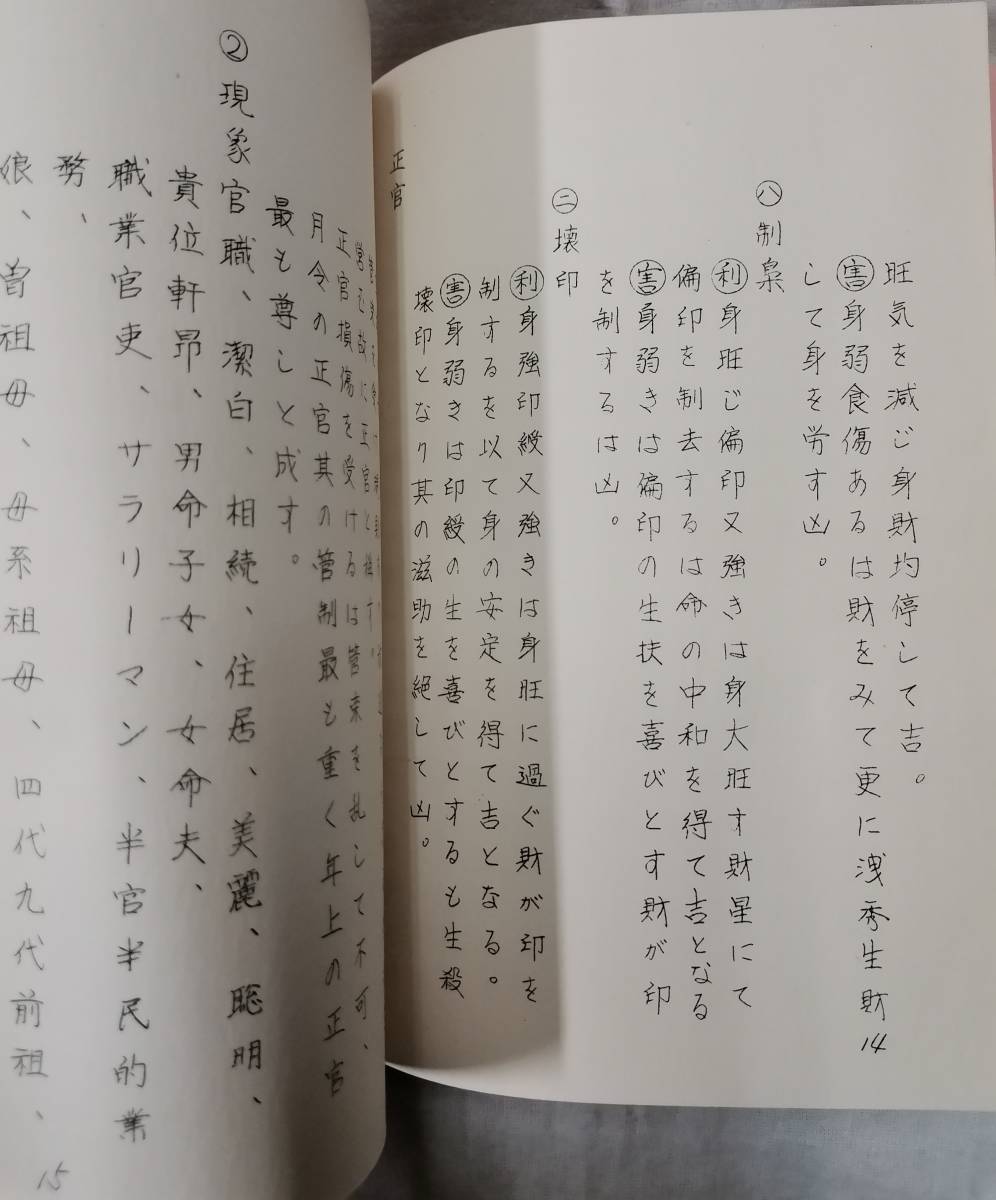 旺気を減じ身財均停して吉。
㊁害身弱食傷あるは財をみて更に洩秀生財
して身を労す凶。
㊇制梟
利身旺じ偏印又強きは身大旺す財星にて
偏印を制去するは命の中和を得て吉となる
害身弱きは偏印の生扶を喜びとす財が印
を制するは凶。
㊁壊印
利身強印綬又強きは身旺に過ぐ財が印を
制するを以て身の安定を得て吉となる。
害身弱きは印綬の生を喜びとするも生殺
壊印となり其の滋助を絶して凶。
正官
14
営む故に正官と
正官損傷を受けるは管束を乱して不可、
月令の正官其の管制最も重く年上の正官
最も尊しと成す。
②現象官職、潔白、相続、住居、美麗、聡明、
貴位軒昂、男命子女、女命夫、
職業官吏、サラリーマン、半官半民的業
務、
娘、曽祖母、母系祖母、四代九代前祖、
15